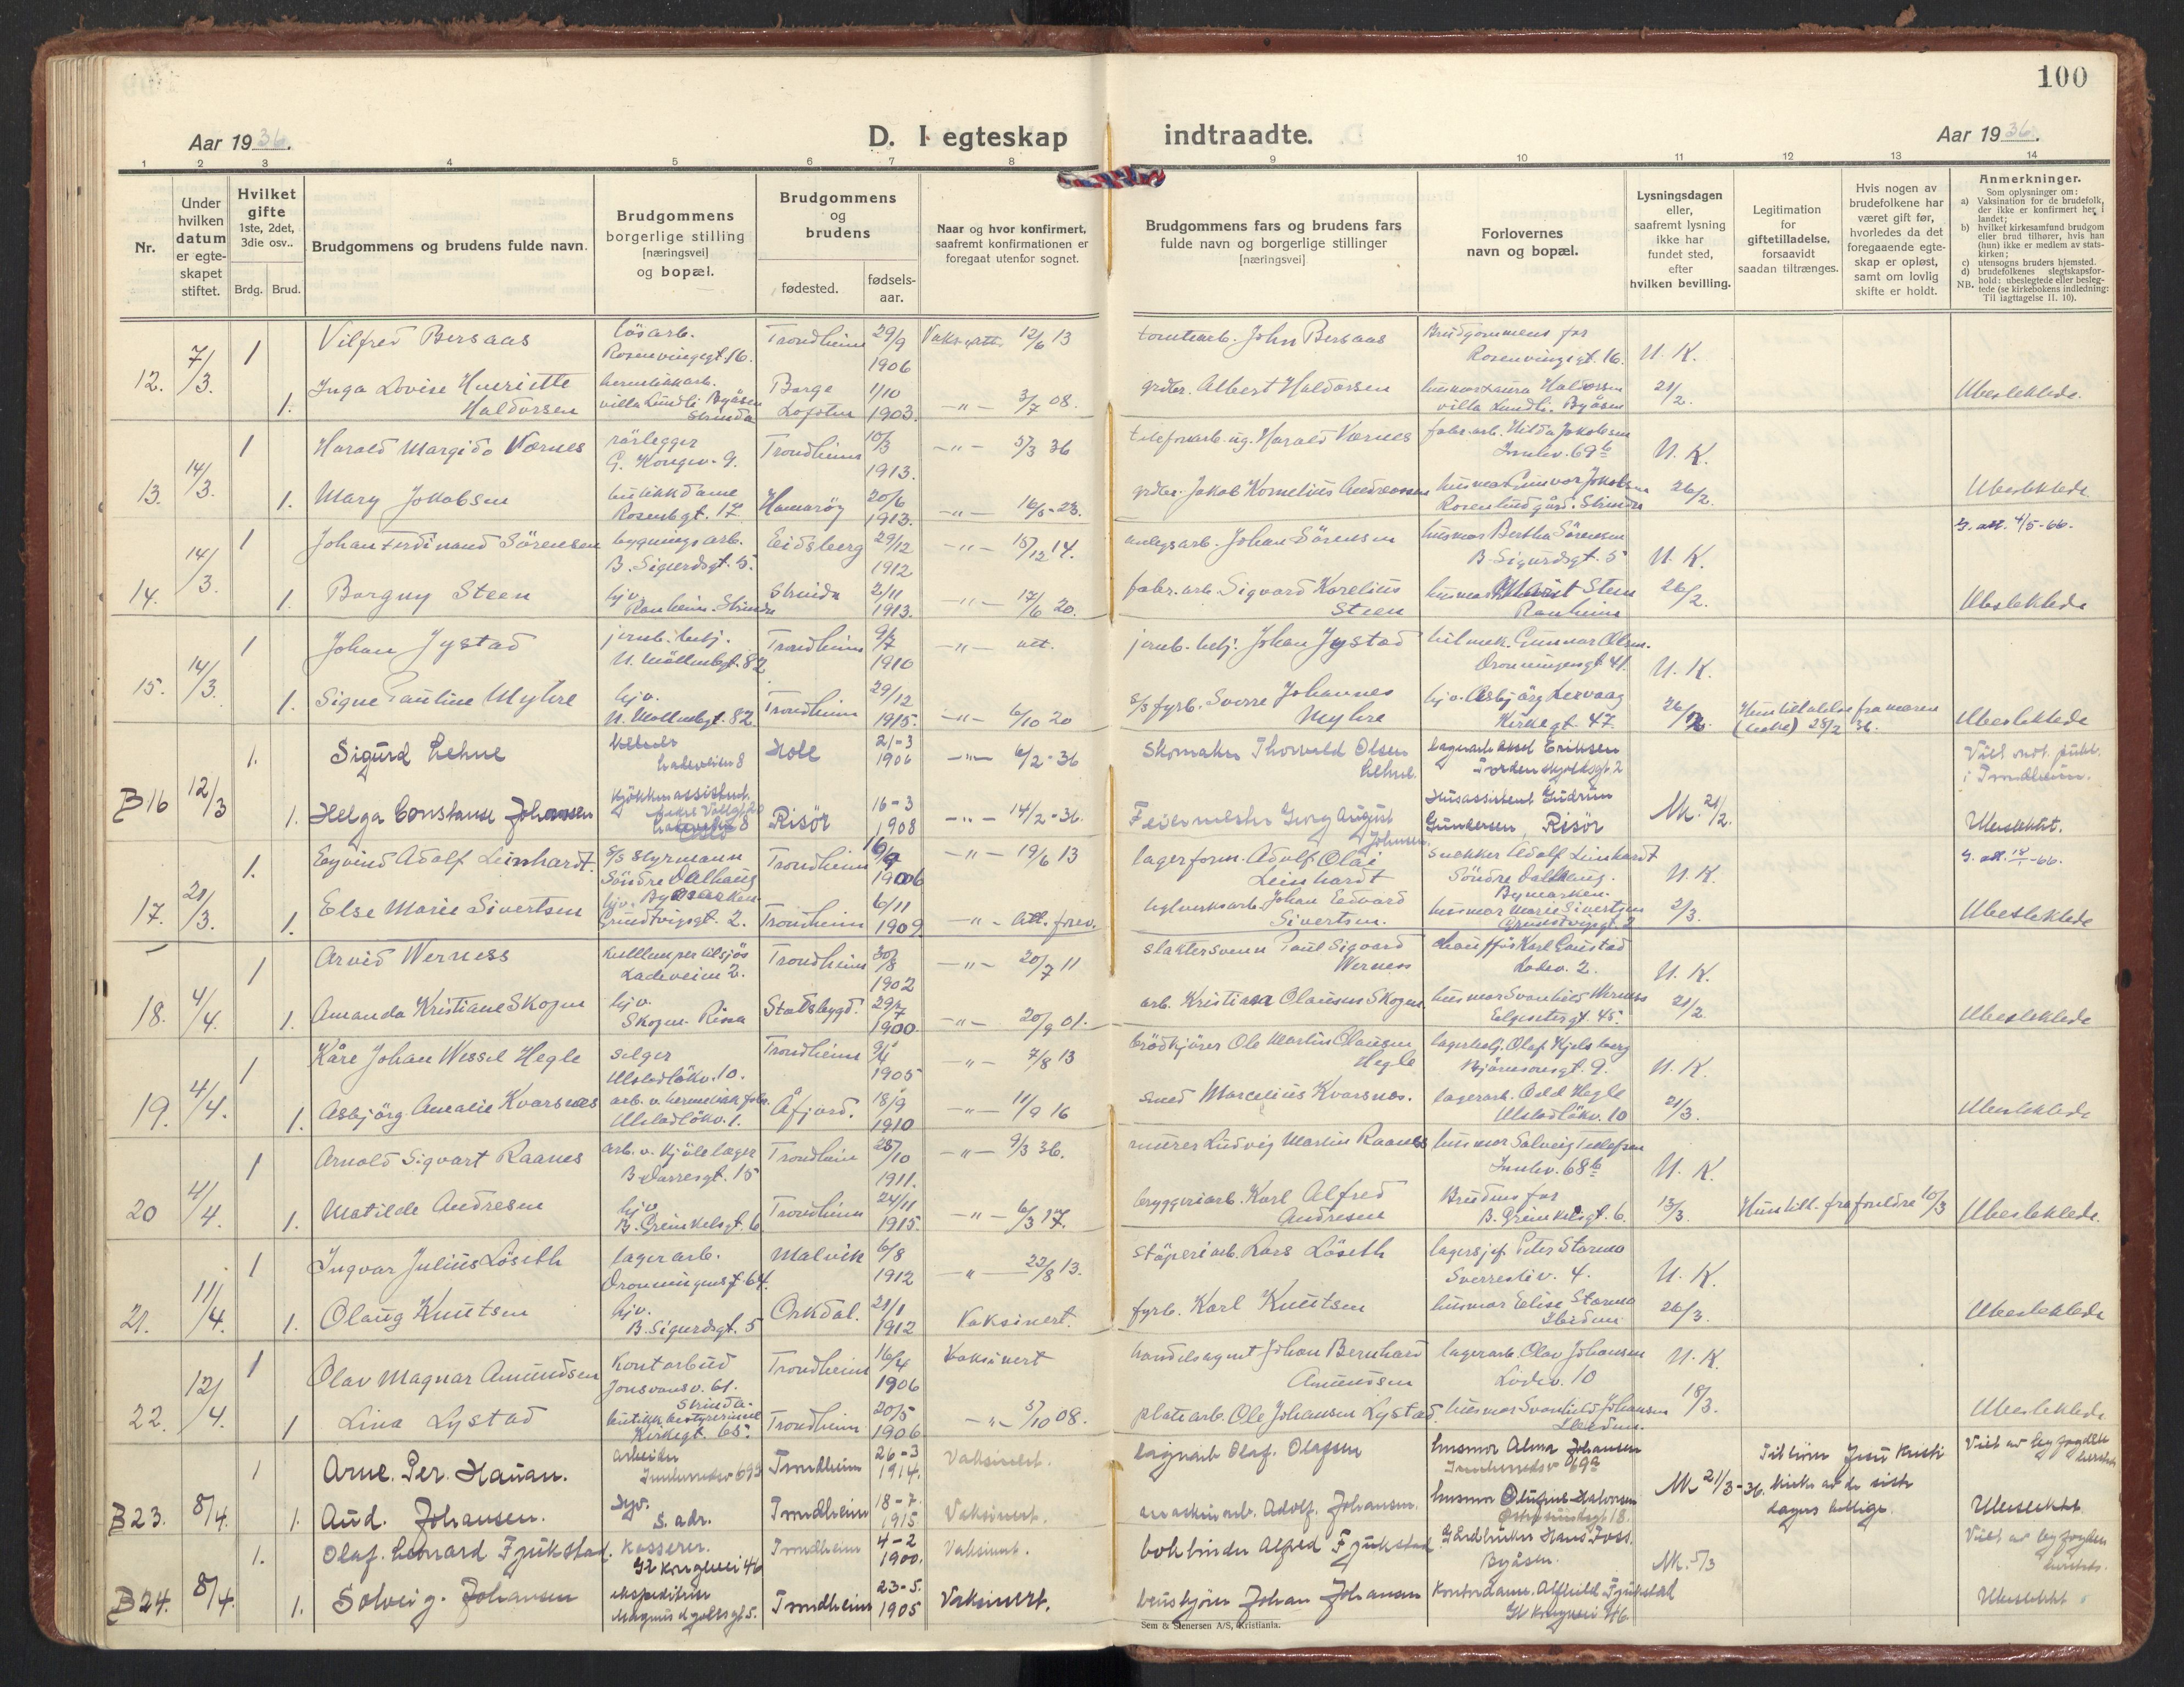 100
Aar 1936.
D. I egteskap indtraadte.
Aar 1936.
1 2 3 4 5 6 7 8 9 10 11 12 13 14
Nr.
Under hvilken datum er egteskapet stiftet.
Hvilket gifte 1ste, 2det, 3die osv..
Brdg. Brud.
Brudgommens og brudens fulde navn.
Brudgommens borgerlige stilling [næringsvei] og bopæl.
Brudgommens og brudens
fødested.
fødsels-aar.
Naar og hvor konfirmert, saafremt konfirmationen er foregaat utenfor sognet.
Brudgommens fars og brudens fars fulde navn og borgerlige stillinger [næringsvei]
Forlovernes navn og bopæl.
Lysningsdagen eller, saafremt lysning ikke har fundet sted, efter hvilken bevilling.
Legitimation for giftetilladelse, forsaavidt saadan tiltrænges.
Hvis nogen av brudefolkene har været gift før, hvorledes da det foregaaende egteskap er opløst, samt om lovlig skifte er holdt.
Anmerkninger.
Som oplysninger om:
a) Vaksination for de brudefolk, der ikke er konfirmert her i landet;
b) hvilket kirkesamfund brudgom eller brud tilhører, hvis han (hun) ikke er medlem av statskirken;
c) utensogns bruders hjemsted.
d) brudefolkenes slegtskapsforhold: ubeslegtede eller beslegtede (se kirkebokens indledning: Til iagttagelse II. 10).
NB.
12. 7/3. 1 Vilfred Bersaas løsarb. Rosenvingegt. 16. Trondheim 29/9 1906 Vaks. att. 12/6 13 tomtearb. John Bersaas Brudgommens far Rosenvingegt. 16. U. K.
1. Inga Lovise Henriette Haldorsen hermetikkarb. villa Lundli Byåsen Strinda Borge Lofoten 1/10 1903. -"- 3/7 08. grdbr. Albert Haldorsen husmor Laura Haldorsen villa Lundli. Byåsen 21/2. Ubeslektede.
13. 14/3. 1 Harald Margido Værnes rørlegger G. Kongev. 9. Trondheim 10/3 1913. -"- 5/3 36 telefonarb. Harald Værnes fabr. arb. Hilda Jakobsen Innhv. 69b U. K.
1. Mary Jakobsen butikkdame Rosenbgt. 17 Hamarøy 20/6 1913. -"- 16/5-23. grdbr. Jakob Kornelius Andreassen husmor Gunvor Jakobsen Rosenlundgård. Strinda 26/2. Ubeslektede
14. 14/3. 1 Johan Ferdinand Sörensen bygningsarb. B. Sigurdsgt. 5. Eidsberg 29/12 1912 -"- 15/12 14. anlegsarb. Johan Sörensen husmor Bertha Sörensen B. Sigurdsgt. 5 U. K. att. 4/5-66.
1. Borgny Steen hjv. Ranheim. Strinda Strinda 2/11 1913. -"- 17/6 20. fabr. arb Sigvard Korelius Steen husmor Steen Ranheim 26/2. Ubeslektede
15. 14/3. 1 Johan Jystad jernb. betj. N. Möllenbgt. 82 Trondheim 9/7 1910 -"- att. jernb. betj. Johan Jystad bilmek. Gunnar Olsen. Dronningensgt 41. U. K.
1. Signe Pauline Myhre hjv. N. Mollenbgt. 82 Trondheim 29/12 1915. -"- 6/10 20 s/s fyrb. Sverre Johannes Myhre hjv. Asbjörg Lervaag Kirkegt. 47 26/2. Hun tillatelse fra moren (enke) 28/2 36. Ubeslektede
B16 12/3 1. Sigurd Lehne Ladeveien 8 Hole 21-3 1906 -"- 6/2-36 Skomaker Thorvald Olsen Lehne. lagerarb Aksel Eriksen Tordenskjoldsgt 2 Viet not. publ. i Trondheim.
1. Helga Constanse Johansen Kjøkkenassistent Risör 16-3 1908 -"- 14/2-36. Feiermester Georg August Johansen Husassistent Gudrun Gundersen, Risör NK. 21/2. Ubeslektet.
17. 21/3. 1. Eyvind Adolf Leinhardt. S/S styrmann Söndre Dalhaug Bymarken. Trondheim 16/9 1906 -"- 19/6 13 lagerform. Adolf Olai Leinhardt snekker Adolf Leinhardt Söndre Dalhaug. Bymarken. U. K. att. 14/1-66.
1. Else Marie Sivertsen hjv. Grundtvigsgt. 2. Trondheim 6/11 1909 -"- Att. forev. Johan Edvard Sivertsen. husmor Marie Sivertsen Grundtvigsgt. 2 2/3. Ubeslektede
18. 4/4. 1 Arvid Werness Ladeveien 2. Trondheim 30/8 1902 -"- 20/7 11 slaktersvenn Paul Sigvard Werness chauffør Karl Gaustad Ladev. 2. U. K.
1. Amanda Kristiane Skogen hjv. Skogen. Rissa Stadsbygd. 29/7 1900 -"- 20/9 01. arb. Kristian Olausen Skogen husmor Svanhild Werness Elgesetergt. 45. 21/2. Ubeslektede
19. 4/4. 1 Kåre Johan Wessel Hegle selger Ulstadlökv. 10. Trondheim 9/4 1905 -"- 7/8 13 brödkjörer Ole Martin Olausen Hegle lagerbetj. Olaf Kjelsberg Bjørnsonsgt. 9. U. K.
1. Asbjörg Amalie Kvarsnes arb. v. hermetikk fabr. Ulstadlökv. 1. Åfjord. 18/9 1910 -"- 11/9 16 smed Marcelius Kvarsnes. lagerarb. Odd Hegle Ulstadlökv. 10 21/3. Ubeslektede
20 4/4. 1 Arnold Sigvart Raanes arb. v. kjölelager B. Darresgt. 15 Trondheim 28/10 1911. -"- 9/3 36. murer Ludvig Martin Raanes husmor Solveig Tellefsen Innhv. 68b U. K.
1. Matilde Andresen hjv. B. Grimkelsgt. 6 Trondheim 24/11 1915. -"- 6/3 17. bryggeriarb. Karl Alfred Andresen Brudens far B. Grimkelsgt. 6. 13/3. Hun till. fra foreldre 10/3 Ubeslektede.
21. 11/4. 1 Ingvar Julius Löseth lagerarb. Dronningensgt. 64. Malvik 6/8 1912 -"- 22/8 13. stöperiarb. Lars Löseth lagersjef Peter Starmo Sverresliv. 4. U. K.
1. Olaug Knutsen hjv. B. Sigurdsgt. 5 Orkdal. 21/1 1912 Vaksinert. fyrb. Karl Knutsen husmor Elise Starmo Ibidem 26/3. Ubeslektede
22. 12/4. 1 Olav Magnar Amundsen Kontorbud Jonsvansv. 61. Strinda. Trondheim 16/4 1906 Vaksinert handelsagent Johan Bernhard Amundsen lagerarb. Olav Johansen Ladev. 10 U. K.
1 Lina Lystad butikkbestyrerinne Kirkegt. 65. Trondheim 20/5 1906 -"- 5/10 08. platearb. Ole Johansen Lystad. husmor Svanhild Johansen Ibidem. 18/3. Ubeslektede
B23. 8/4. 1 Arne Per Hauan. arbeider Innherredsv 69a Trondheim 26-3 1914. Vaksinert. lagerarb Olaf. Olafsen husmor Alma Johansen Innherredsv 69a NK 21/3-36. Tilhörer Jesu Kristi kirke av de siste dagers hellige. Viet av byfogden
1. Aud. Johansen. hjv. s. adr. Trondheim 18-7. 1915 Vaksinert. maskinarb. Adolf. Johansen. husmor Halvorsen Ubeslektet
B24. 8/4. 1. Olaf. Leonard Fjukstad. kasserer. Gl Kongevei 46 Trondheim 4-2 1900. Vaksinert. bokbinder Alfred Fjukstad Gårdbruker Hans Foss. Byåsen. NK. 5/3 Viet av byfogden
1. Solveig. Johansen ekspeditrise Magnus d. godesgt 5. Trondheim 23-5. 1905 Vaksinert. Johan Johansen kontordame. Alfhild. Fjukstad Gl Kongevei 46 Ubeslektet
Sem & Stenersen A/S, Kristiania.